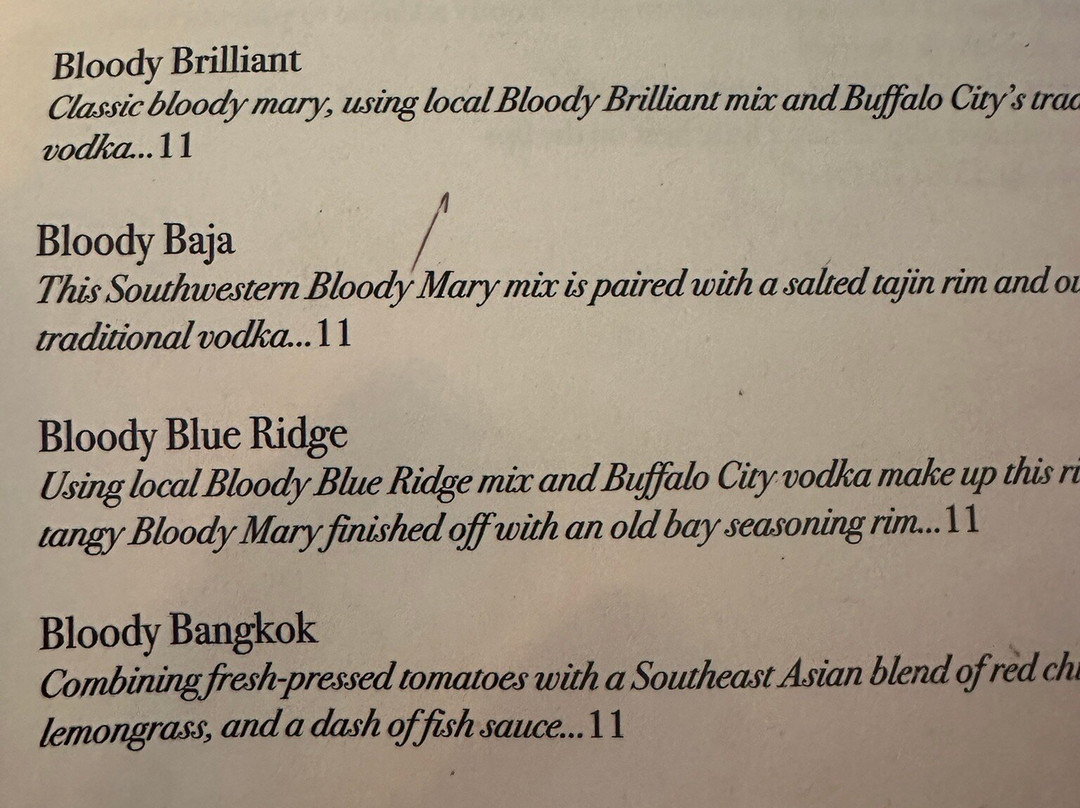 Bloody Brilliant
Classic bloody mary, using local Bloody Brilliant mix and Buffalo City's
vodka...11
Bloody Baja
This Southwestern Bloody Mary mix is paired with a salted tajin rim and
traditional vodka...11
Bloody Blue Ridge
Using local Bloody Blue Ridge mix and Buffalo City vodka make up this
tangy Bloody Mary finished off with an old bay seasoning rim...11
Bloody Bangkok
Combining fresh-pressed tomatoes with a Southeast Asian blend of red
lemongrass, and a dash of fish sauce...11